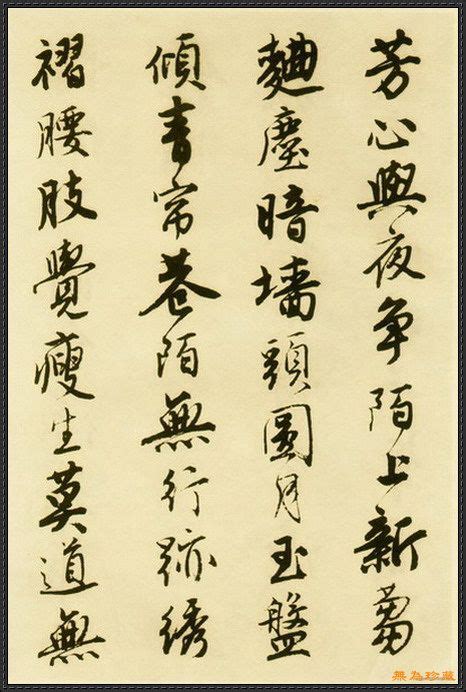 芳心與夜争陌上新
麯塵暗墻頭圓月玉盤
傾青帘巷陌無行跡綉
褶腰肢覺瘦生莫道無
無為珍藏